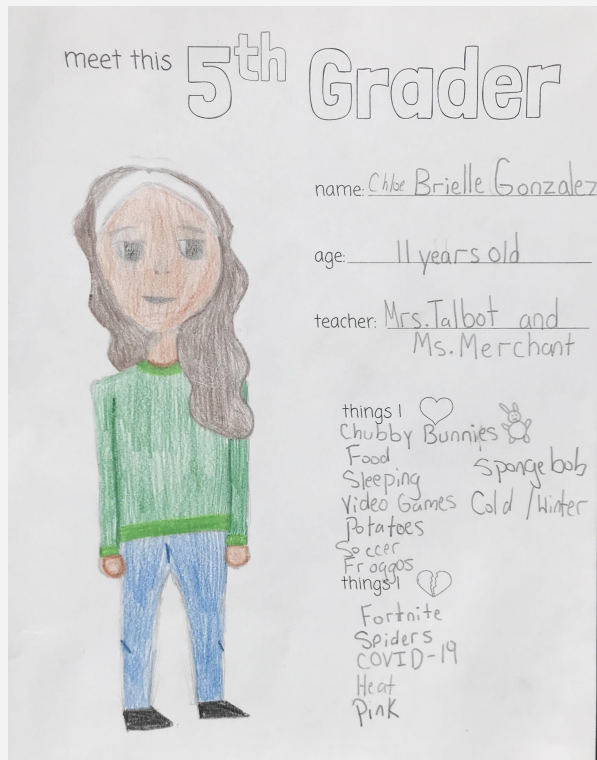 meet this 5th Grader
name: Chloe Brielle Gonzalez
age: 11 years old
teacher: Mrs. Talbot and
Ms. Merchant
things I
Chubby Bunnies
Food
Spongebob
Sleeping
Video Games
Cold / Winter
Potatoes
Soccer
Froggos
things I
Fortnite
Spiders
COVID-19
Heat
Pink